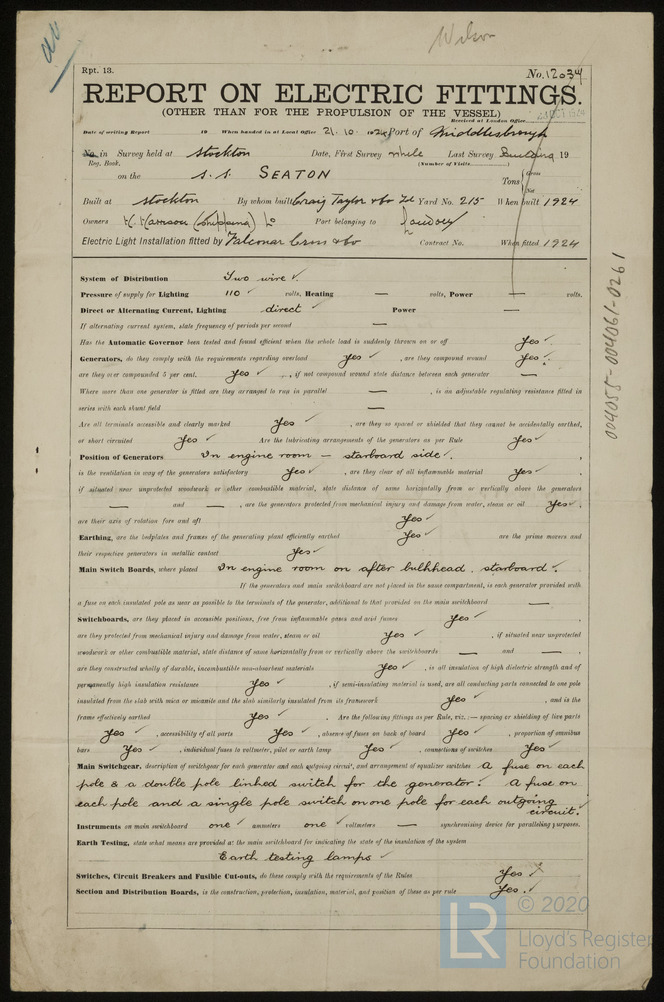 Wilson
Rpt. 13.
No. 12034
REPORT ON ELECTRIC FITTINGS.
(OTHER THAN FOR THE PROPULSION OF THE VESSEL)
Received at London Office
Date of writing Report 19 When handed in at Local Office 21. 10. 1924 Port of Middlesbrough
No. in Survey held at Stockton Date, First Survey while Last Survey Building 19
Reg. Book. (Number of Visits
on the S.S. SEATON Tons Gross Net
Built at Stockton By whom built Craig Taylor & Co Ld Yard No. 215 When built 1924
Owners H. Harrison (Shipping) Ld Port belonging to London
Electric Light Installation fitted by Falconar Cross & Co Contract No. When fitted 1924
System of Distribution Two wire ✓
Pressure of supply for Lighting 110 ✓ volts, Heating — volts, Power — volts.
Direct or Alternating Current, Lighting direct ✓ Power —
If alternating current system, state frequency of periods per second —
Has the Automatic Governor been tested and found efficient when the whole load is suddenly thrown on or off Yes ✓
Generators, do they comply with the requirements regarding overload Yes ✓, are they compound wound Yes ✓
are they over compounded 5 per cent. Yes ✓, if not compound wound state distance between each generator —
Where more than one generator is fitted are they arranged to run in parallel —, is an adjustable regulating resistance fitted in
series with each shunt field —
Are all terminals accessible and clearly marked Yes ✓, are they so spaced or shielded that they cannot be accidentally earthed,
or short circuited Yes ✓ Are the lubricating arrangements of the generators as per Rule Yes ✓
Position of Generators In engine room — starboard side ✓.
is the ventilation in way of the generators satisfactory Yes ✓, are they clear of all inflammable material Yes ✓
if situated near unprotected woodwork or other combustible material, state distance of same horizontally from or vertically above the generators
— and —, are the generators protected from mechanical injury and damage from water, steam or oil Yes ✓
are their axis of rotation fore and aft Yes ✓
Earthing, are the bedplates and frames of the generating plant efficiently earthed Yes ✓ are the prime movers and
their respective generators in metallic contact Yes ✓
Main Switch Boards, where placed In engine room on after bulkhead, starboard ✓.
If the generators and main switchboard are not placed in the same compartment, is each generator provided with
a fuse on each insulated pole as near as possible to the terminals of the generator, additional to that provided on the main switchboard —
Switchboards, are they placed in accessible positions, free from inflammable gases and acid fumes Yes ✓
are they protected from mechanical injury and damage from water, steam or oil Yes ✓, if situated near unprotected
woodwork or other combustible material, state distance of same horizontally from or vertically above the switchboards — and —
are they constructed wholly of durable, incombustible non-absorbent materials Yes ✓, is all insulation of high dielectric strength and of
permanently high insulation resistance Yes ✓, if semi-insulating material is used, are all conducting parts connected to one pole
insulated from the slab with mica or micanite and the slab similarly insulated from its framework Yes ✓, and is the
frame effectively earthed Yes ✓. Are the following fittings as per Rule, viz.:— spacing or shielding of live parts
Yes ✓, accessibility of all parts Yes ✓, absence of fuses on back of board Yes ✓, proportion of omnibus
bars Yes ✓, individual fuses to voltmeter, pilot or earth lamp Yes ✓, connections of switches Yes ✓
Main Switchgear, description of switchgear for each generator and each outgoing circuit, and arrangement of equalizer switches A fuse on each
pole & a double pole linked switch for the generator. A fuse on
each pole and a single pole switch on one pole for each outgoing
circuit.
Instruments on main switchboard one ✓ ammeters one ✓ voltmeters — synchronising device for paralleling purposes.
Earth Testing, state what means are provided at the main switchboard for indicating the state of the insulation of the system
Earth testing lamps ✓
Switches, Circuit Breakers and Fusible Cut-outs, do these comply with the requirements of the Rules Yes ✓
Section and Distribution Boards, is the construction, protection, insulation, material, and position of these as per rule Yes. ✓
004055-004061-0261
© 2020
LR
Lloyd's Register
Foundation